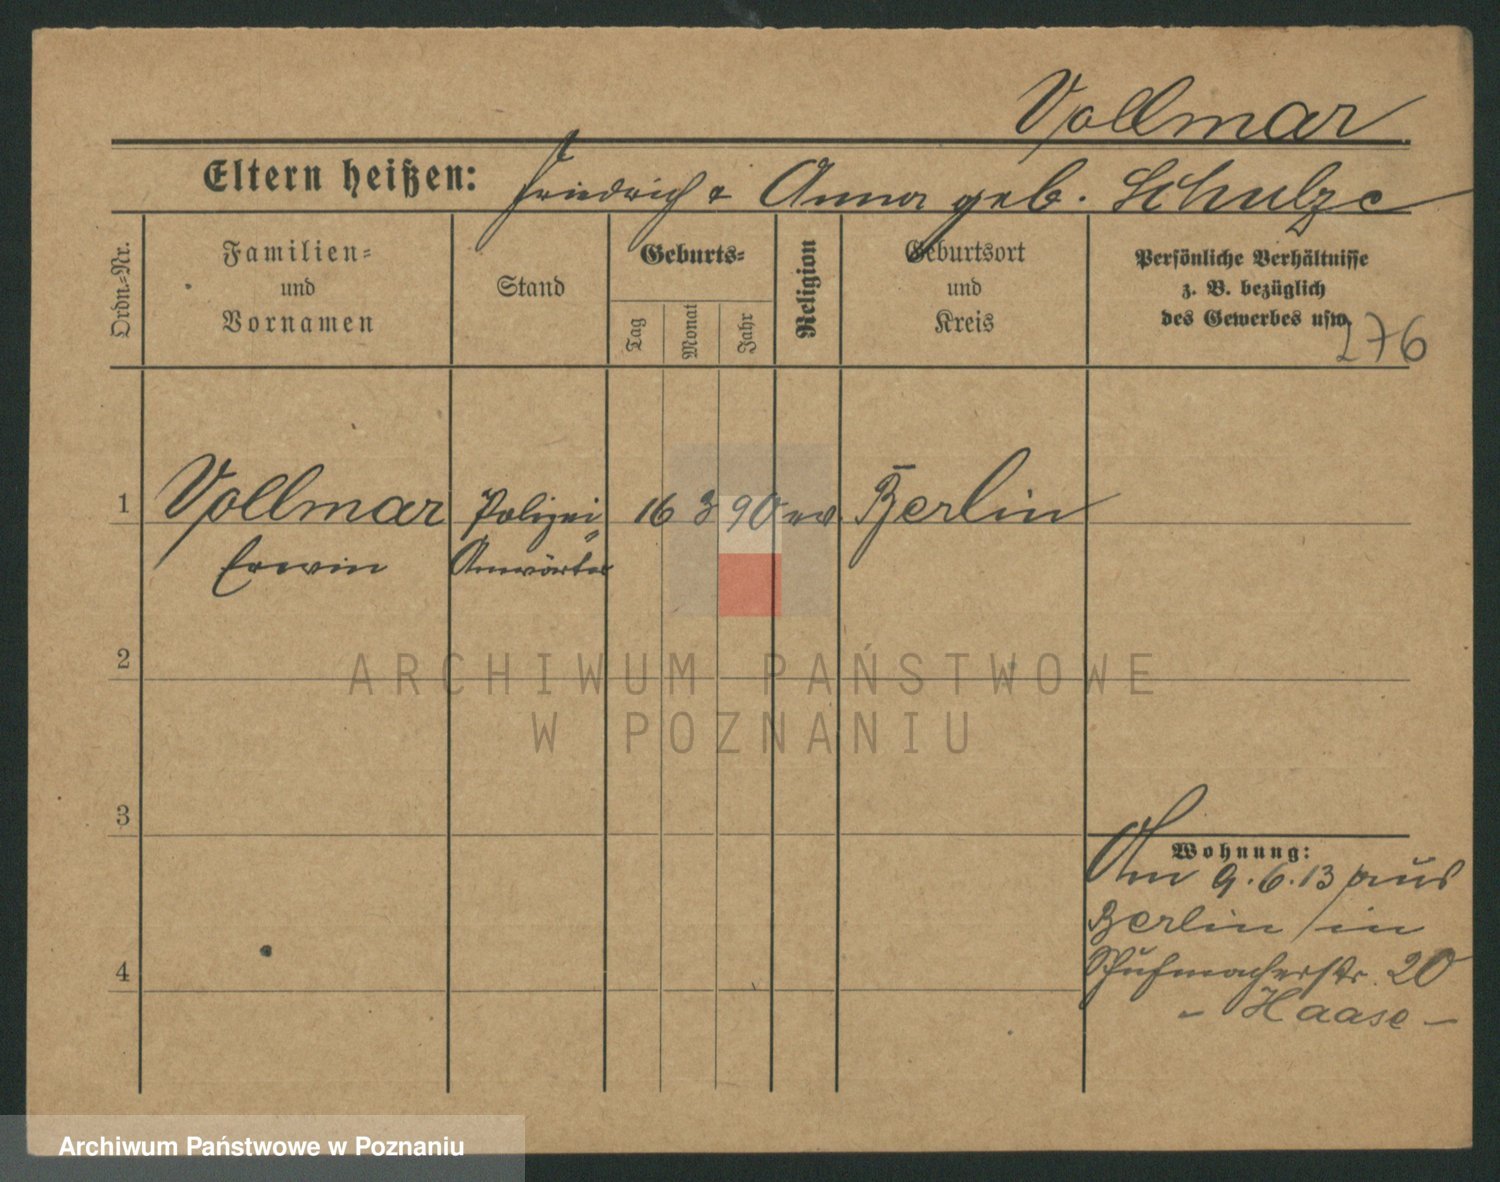 Vollmar
Eltern heißen: Friedrich & Anna geb. Schulze
Ordn.=Nr.
Familien=
und
Vornamen
Stand
Geburts=
Tag
Monat
Jahr
Religion
Geburtsort
und
Kreis
Persönliche Verhältnisse
z. B. bezüglich
des Gewerbes usw.
276
1 Vollmar Polizei 16 3 90 ev. Berlin
Erwin Anwärter
ARCHIWUM PAŃSTWOWE
W POZNANIU
2
3
4
Wohnung:
Am 9.6.13 aus
Berlin in
Schuhmacherstr. 20
- Haase -
Archiwum Państwowe w Poznaniu